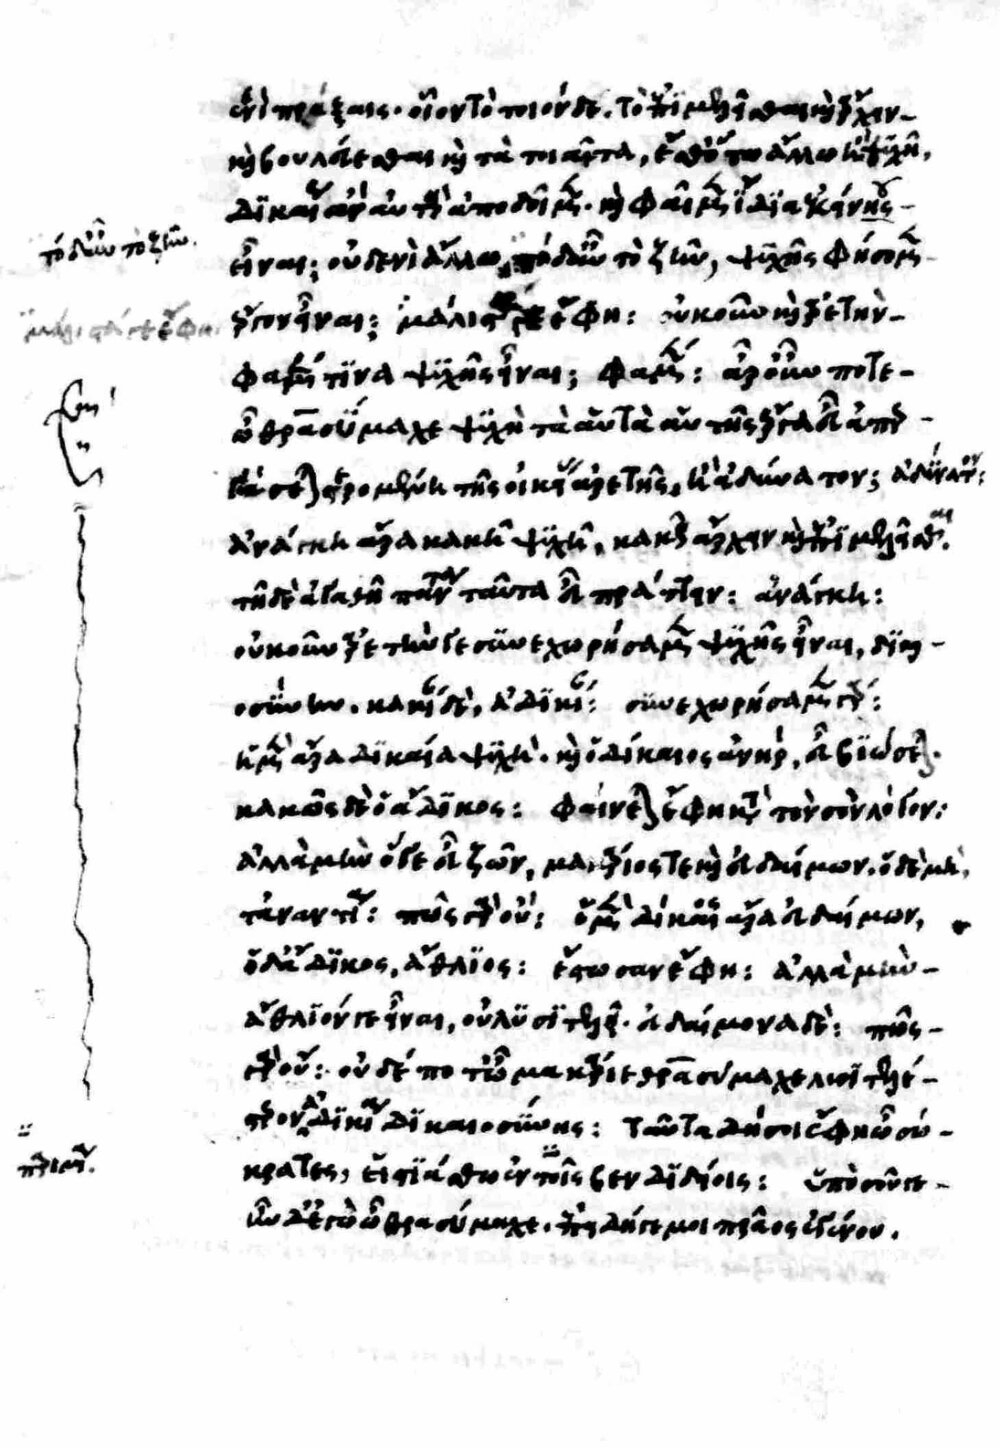 ἑνὶ πράξαις· οἷον τὸ τοιόνδε. τὸ ἐπιμελεῖσθαι καὶ ἄρχειν
καὶ βουλεύεσθαι καὶ τὰ τοιαῦτα, ἔσθ' ὅτῳ ἄλλω ἢ ψυχῆ,
δικαίως ἂν αὐτὰ ἀποδοῖμεν. καὶ φαῖμεν ἴδια ἐκείνης
εἶναι; οὐδενὶ ἄλλω· τί δ' αὖ τὸ ζῆν, ψυχῆς φήσομεν
τό δ' αὖ τὸ ζῆν.
ἔργον εἶναι; μάλιστά γ' ἔφη: οὐκοῦν καὶ ἀρετὴν
μάλιστά γ' ἔφη.
φαμέν τινα ψυχῆς εἶναι; φαμέν: ἆρ' οὖν ποτε
ὦ θρασύμαχε ψυχὴ τὰ αὑτῆς ἔργα εὖ ἀπερ
γάσεται στερομένη τῆς οἰκείας ἀρετῆς, ἢ ἀδύνατον; ἀδύνατον:
ἀνάγκη ἄρα κακῆ ψυχῆ, κακῶς ἄρχειν καὶ ἐπιμελεῖσθαι.
τῆ δὲ ἀγαθῆ πάντα ταῦτα εὖ πράττειν: ἀνάγκη:
οὐκοῦν ἀρετήν γε συνεχωρήσαμεν ψυχῆς εἶναι, δικαι
οσύνην. κακίαν δὲ, ἀδικίαν: συνεχωρήσαμεν γάρ:
ἡ μὲν ἄρα δικαία ψυχὴ. καὶ ὁ δίκαιος ἀνήρ, εὖ βιώσεται.
κακῶς δὲ ὁ ἄδικος: φαίνεται ἔφη κατὰ τὸν σὸν λόγον:
ἀλλὰ μὴν ὅ γε εὖ ζῶν, μακάριός τε καὶ εὐδαίμων. ὁ δὲ μὴ,
τἀναντία: πῶς γὰρ οὔ: ὁ μὲν δίκαιος ἄρα εὐδαίμων,
ὁ δ' ἄδικος, ἄθλιος: ἔστωσαν ἔφη: ἀλλὰ μὴν
ἄθλιόν γε εἶναι, οὐ λυσιτελεῖ· εὐδαίμονα δὲ: πῶς
γὰρ οὔ: οὐδέποτ' ὦ μακάριε θρασύμαχε λυσιτελέ
στερον ἀδικία δικαιοσύνης: ταῦτα δή σοι ἔφη ὦ σώ
κρατες, εἱστιάσθω ἐν τοῖς βενδιδείοις: ὑπὸ σοῦ γε
ἦν δ' ἐγὼ ὦ θρασύμαχε. ἐπειδή γέ μοι πρᾶος ἐγένου.